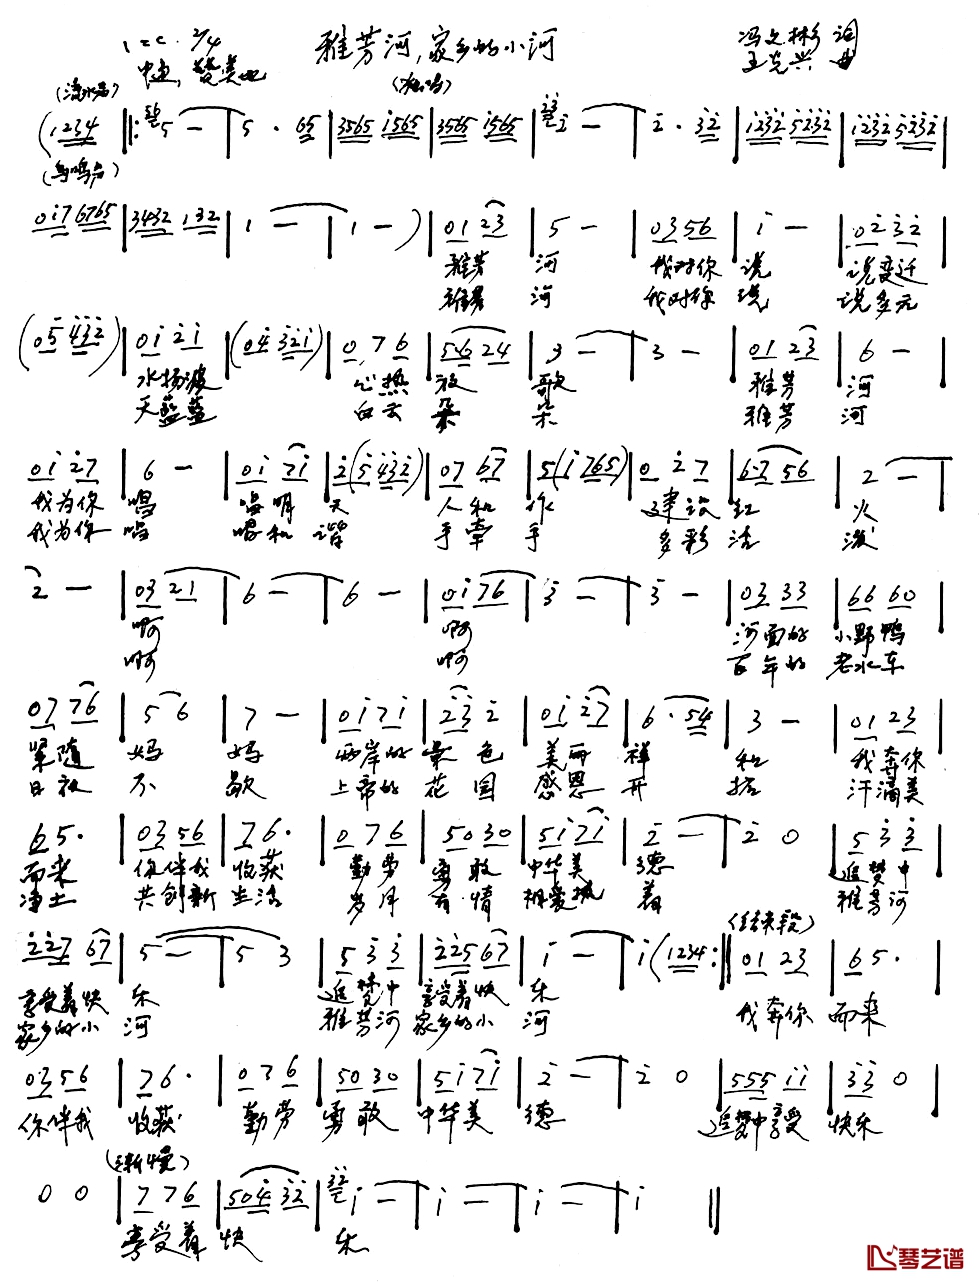 1=C 2/4 雅芳河,家乡的小河 冯文彬 词
中速,赞美地 (独唱) 王克兴 曲
(流水声)
(1234 ‖: 5 — | 5 · 65 | 3565 i565 | 3565 i565 | 2̇ — | 2̇ · 3̇2̇ | i2̇3̇2̇ 52̇3̇2̇ | i2̇3̇2̇ 52̇3̇2̇ |
(鸟鸣声)
0i7 6765 | 3432 132 | 1 — | 1 — ) | 01 23 | 5 — | 03 56 | i — | 02̇ 3̇2̇ |
雅芳 河 我对你 说 说变迁
雅芳 河 我对你 说 说多元
(05̇ 4̇3̇2̇) | 0i 2̇i | (04̇ 3̇2̇i) | 0 7 6 | 56 24 | 3 — | 3 — | 01 23 | 6 — |
水扬波 心热 放 歌 雅芳 河
天蓝蓝 白云 朵 朵 雅芳 河
0i 2̇7 | 6 — | 0i 7i | 2̇(5̇ 4̇3̇2̇) | 07 67 | 5(i 765) | 0 2̇ 7 | 67 56 | 2 — |
我为你 唱 唱明 天 人和 作 建设 红 火
我为你 唱 唱和 谐 手牵 手 多彩 活 泼
2 — | 03 21 | 6 — | 6 — | 0i 76 | 3̇ — | 3̇ — | 03 33 | 66 60 |
啊 啊 河面的 小野鸭
啊 啊 百年的 老水车
07 76 | 5 6 | 7 — | 0i 7i | 2̇3̇ 2̇ | 0i 2̇7 | 6 · 54 | 3 — | 01 23 |
紧随 妈 妈 两岸的 景 色 美丽 祥 和 我奔你
日夜 不 歇 上帝的 花 园 感恩 开 拓 汗满美
65 · | 03 56 | 76 · | 0 7 6 | 50 30 | 5i 7i | 2̇ — | 2̇ 0 | 5 3̇ 3̇ |
而来 你伴我 收获 勤劳 勇敢 中华美 德 追梦中
净土 共创新 生活 岁月 有情 相爱 着 雅芳河
(结束段)
2̇2̇7 67 | 5 — | 5 3 | 5 3̇ 3̇ | 2̇2̇5 67 | i — | i (1234 :‖ 01 23 | 65 · |
享受着快 乐 追梦中 享受着快 乐 我奔你 而来
家乡的小 河 雅芳河 家乡的小 河
03 56 | 76 · | 0 7 6 | 50 30 | 5i 7i | 2̇ — | 2̇ 0 | 555 ii | 3̇3̇ 0 |
你伴我 收获 勤劳 勇敢 中华美 德 追梦中享受 快乐
(渐慢)
0 0 | 7 7 6 | 504̇ 3̇2̇ | i — | i — | i — | i ‖
享受着 快 乐
琴艺谱